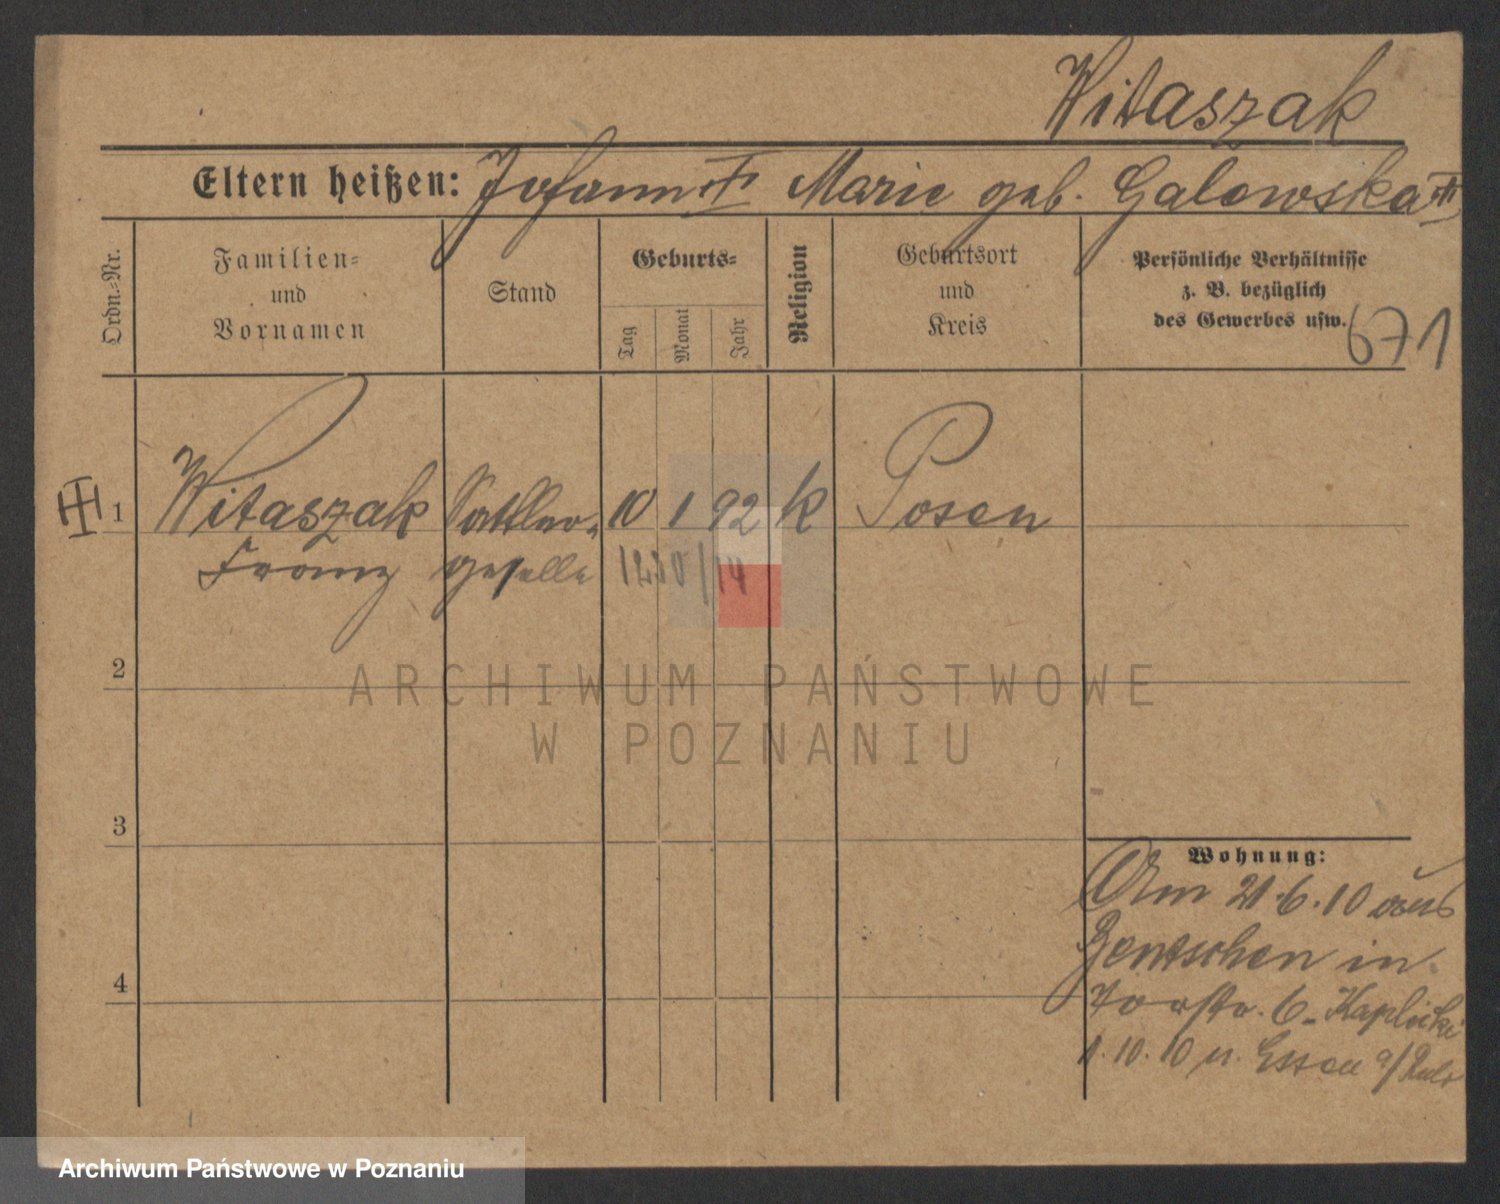 Witaszak
Eltern heißen: Johann Marie geb. Galowska
Ordn.-Nr.
Familien-
und
Vornamen
Stand
Geburts-
Tag
Monat
Jahr
Religion
Geburtsort
und
Kreis
Persönliche Verhältnisse
z. B. bezüglich
des Gewerbes usw.
671
1 Witaszak Sattler- 10 1 92 k Posen
Franz geselle 1250/14
2
ARCHIWUM PAŃSTWOWE
W POZNANIU
3
Wohnung:
Am 21.6.10 aus
Bentschen in
Torstr. 6. Kaplicki
4
1.10.10 n. Essen a/Ruhr
Archiwum Państwowe w Poznaniu